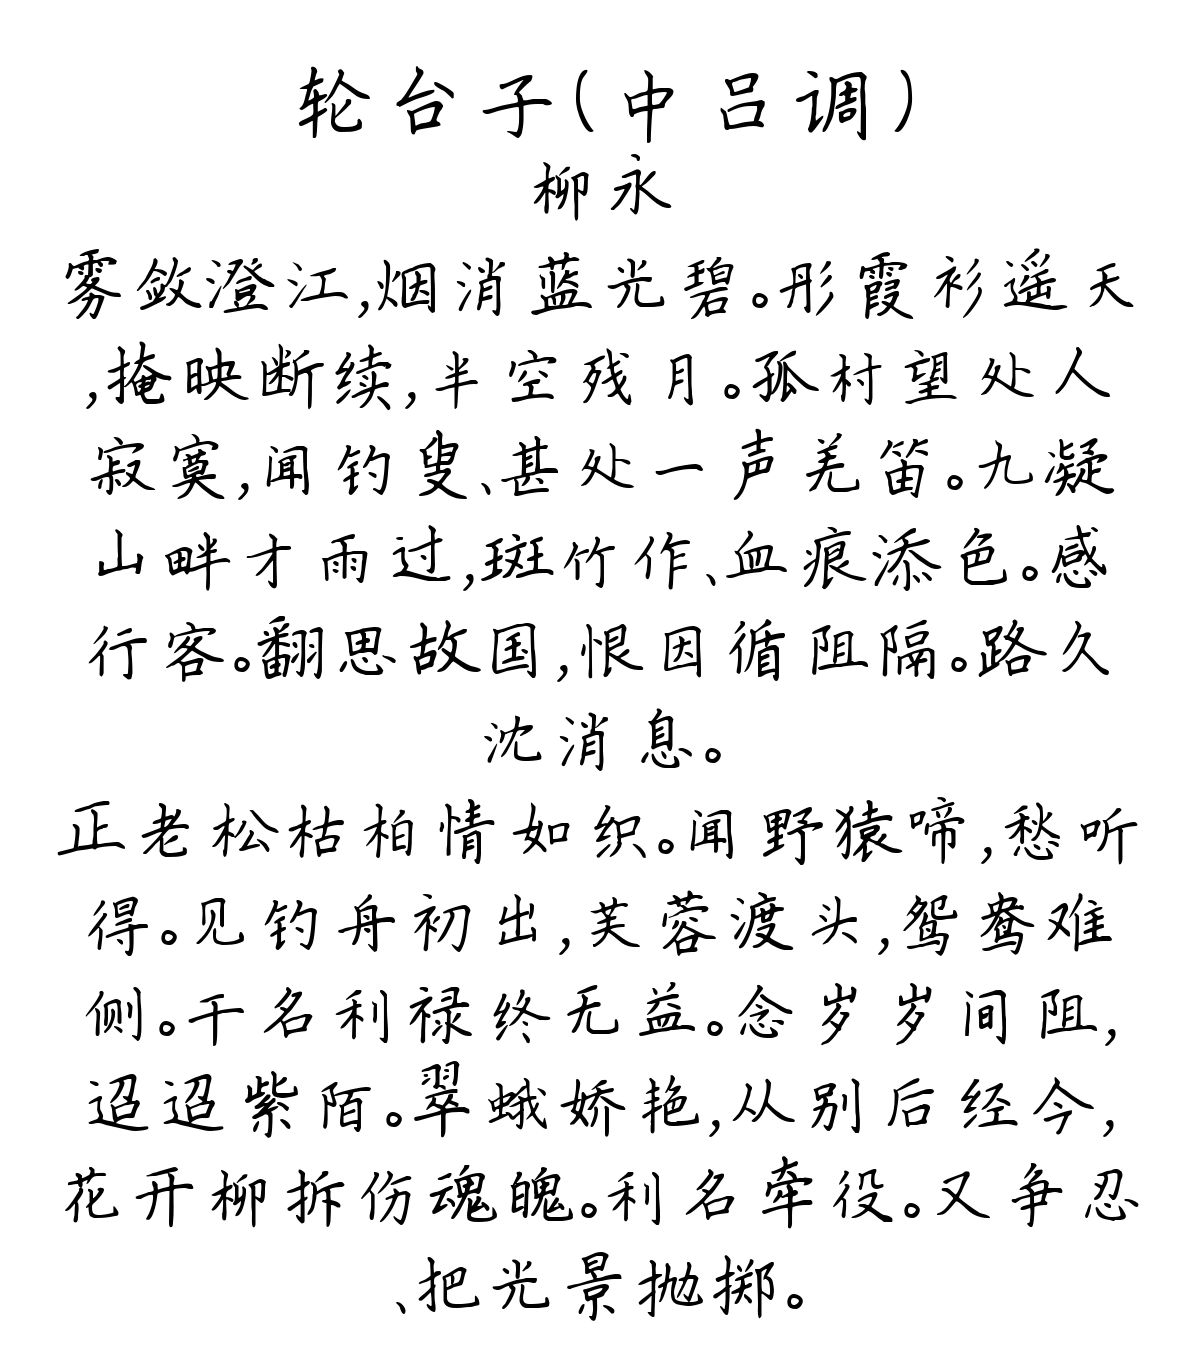 轮台子(中吕调)
柳永
雾敛澄江,烟消蓝光碧。彤霞衫遥天
,掩映断续,半空残月。孤村望处人
寂寞,闻钓叟、甚处一声羌笛。九凝
山畔才雨过,斑竹作、血痕添色。感
行客。翻思故国,恨因循阻隔。路久
沈消息。
正老松枯柏情如织。闻野猿啼,愁听
得。见钓舟初出,芙蓉渡头,鸳鸯难
侧。干名利禄终无益。念岁岁间阻,
迢迢紫陌。翠蛾娇艳,从别后经今,
花开柳拆伤魂魄。利名牵役。又争忍
、把光景抛掷。